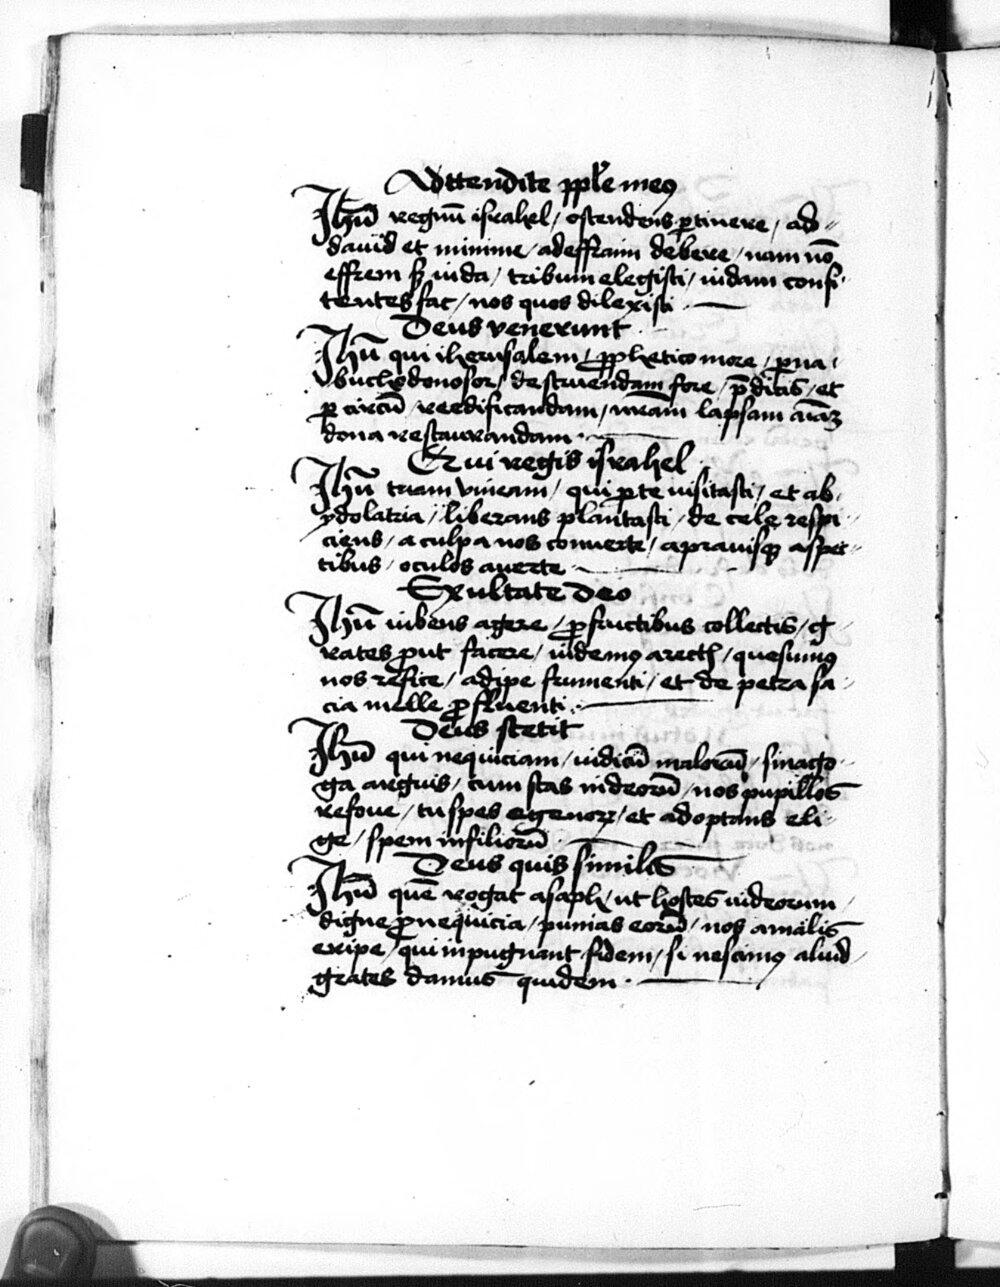 Adttendite pple meꝰ
Ihū regnū israhel / ostendens ꝑtinere / ad
dauid et minime / adeffraim debere / nam nō
effrem sꝫ iuda / tribum elegisti / iudam confi
tentes fac / nos quos dilexisti
Deus venerunt
Ihū qui iherusalem / ꝓphetico more / ꝑ na
buchodonosor / destruendam fore / p̄dicis / et
ꝑ circū / reedificandam / nr̄am lapsam aīaꝫ
dona restaurandam
Qui regis israhel
Ihū tuam vineam / qui ꝑ te uisitasti / et ab
ydolatria / liberans plantasti / de celo respi
ciens / a culpa nos conuerte / aprauisqꝫ aspec
tibus / oculos auerte
Exultate deo
Ihū iubens agere / ꝓ fructibus collectis / g
rates prout facere / uidemꝰ
nos refice / adipe frumenti / et de petra sa
cia melle ꝓfluenti
Deus stetit
Ihū qui nequiciam / iudicū malorū / sinago
ga arguis / cum stas indeorū / nos pupillos
refoue / tu spes egenoꝝ / et adoptans eli
ge / spem infiliorū
Deus quis similis
Ihū quē rogat asaph / ut hostes iudeorum
digne ꝓ nequicia / punias eorū / nos amalis
eripe / qui inpugnant fidem / si nescimꝰ aliud
grates damus quidem